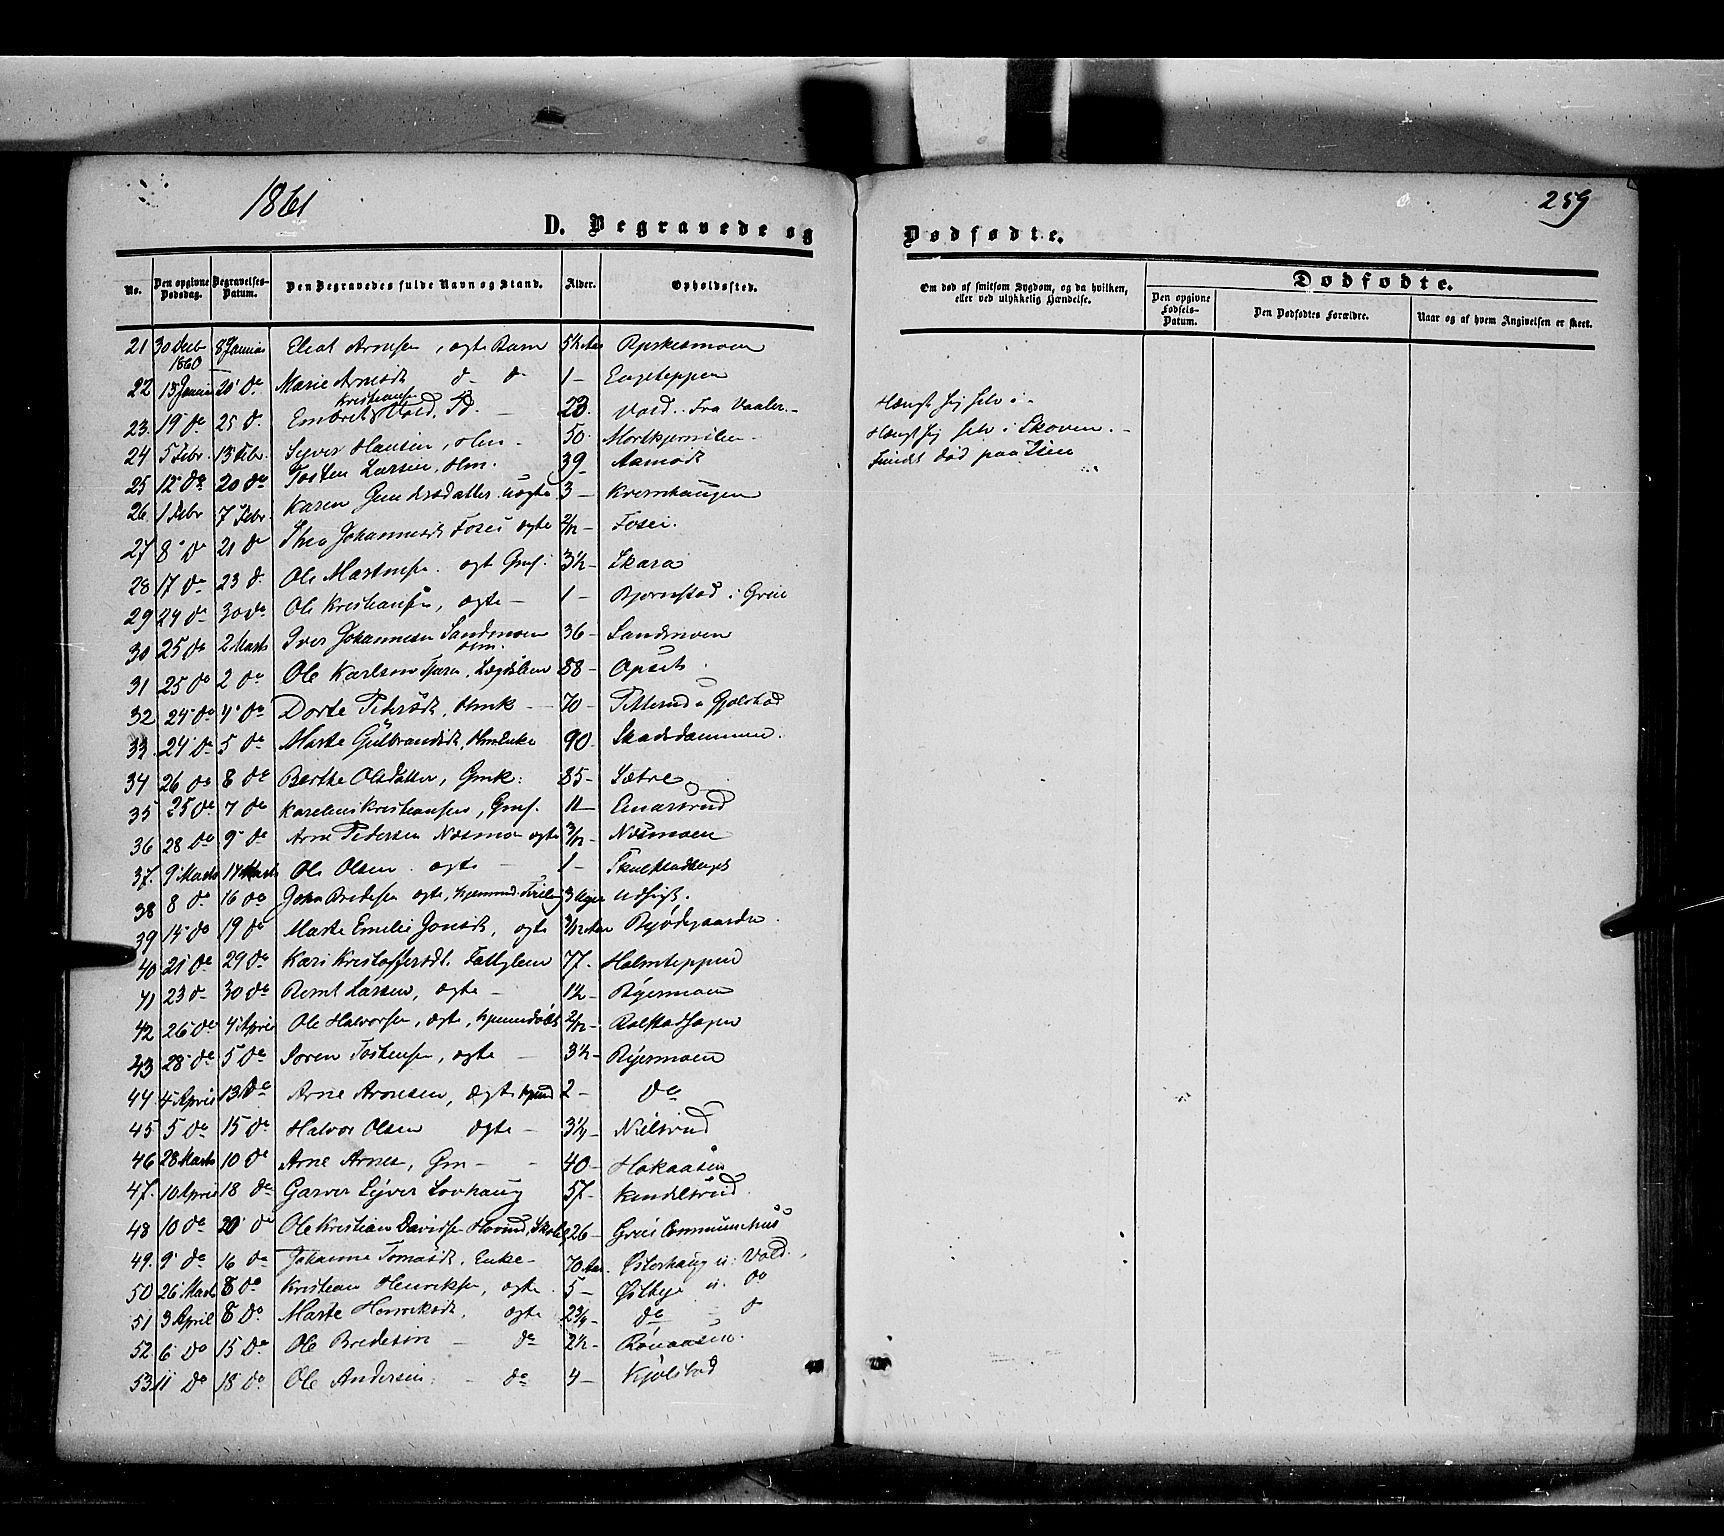 1861
259
D. Begravede og Dødfødte.
No. Den opgivne Dødsdag. Begravelses-Datum. Den Begravedes fulde Navn og Stand. Alder. Opholdssted.
Om død af smitsom Sygdom, og da hvilken, eller ved ulykkelig Hændelse.
Dødfødte.
Den opgivne Fødsels-Datum. Den Dødfødtes Forældre. Naar og af hvem Angivelsen er skeet.
21 30 Decb 1860 8 Januar Arnesen, ægte Barn 5½ Aar
22 20 do Marie Arnesdt do do 1 - Engteppen
23. 19 do 25 d. Embret Kristiansen Vold, 23. Vold. Fra Vaaler. - Hængt sig selv i -
24 5 Febr 13 Febr. Syver Hansen, Hm - 50. Hængt sig selv i Skoven. -
25 12 do 20 do Tosten Larsen, Hm. 39 - Aamodt Fundet død paa Isen
26 1 Febr 7 Febr Karen uægte 3 - Kvernhaugen
27 8 do 21 do Thea Johannesdt Fosei ægte 2/12 - Fosei.
28 17 do 23 d. Ole ægt Gmf. 3½ - Skara
29 24 do 30 do Ole Kristiansen, ægte - 1 - Bjørnstad i Grue
30 25 do 2 Marts Iver Johannesen Sandmoen Hm. 36 - Sandmoen
31 25 do 2 do Ole Karlsen, Lægdslem 88 - Opset.
32 24 do 4 do Dorte Pedersdt, Hmk - 70 -
33. 24 do 5 do Marte Gulbrandsdt, Hmenke 90. Skadsdammen.
34 26 do 8 do Berthe Olsdatter, Gmk: 85 - Sætre
35 25 do 7 do Kristiansen, Gmf. 11 -
36 28 do 9 do Arne Pedersen Næsmo ægte 3/12 - Næsmoen
37. 9 Marts 14 Marts Ole Olsen ægte - 1 -
38 8 do 16 do John Bredesen ægte, 3 Uger Udsigt.
39 14 do 19 do Marte Emilie Jonsdt, ægte 3/12 Aar
40 21 do 29 do Kari Kristoffersdt. Fattiglem 77. Holmteppen
41 23 d - 30 do Bernt Larsen, ægte - 1½ - Byermoen
42 26 do 4 April Ole Halvorsen, ægte, 2/12 -
43 28 do 5 do Søren Tostensen, ægte - 3½ - Byermoen
44 4 April 13 do Arne Arnesen, ægte 2 - do
45 5 do 15 do Halvor Olsen ægte - 3¼ - Nielsrud
46 28 Marts 10 do Arne Arnes, Gm - - 40 - Hakaasen
47. 10 April 18 do Garver Syver Lovhaug 57 -
48 10 do 20 do Ole Kristian Davidsen 26 - Communehus
49. 9 do 16 do Johanne Tomasdt. Enke - 70 Aar. Østerhaug u: Vold.
50 26 Marts 8 do Kristian Henriksen, ægte 5 - Østbye u: do
51 3 April 8 do Marte Henriksdt ægte 2¾ - do - do
52. 6 do 15 do Ole Bredesen - do 2½ - Rønaasen.
53 11 do 18 do Ole Andersen - do 4 - Kjølstad